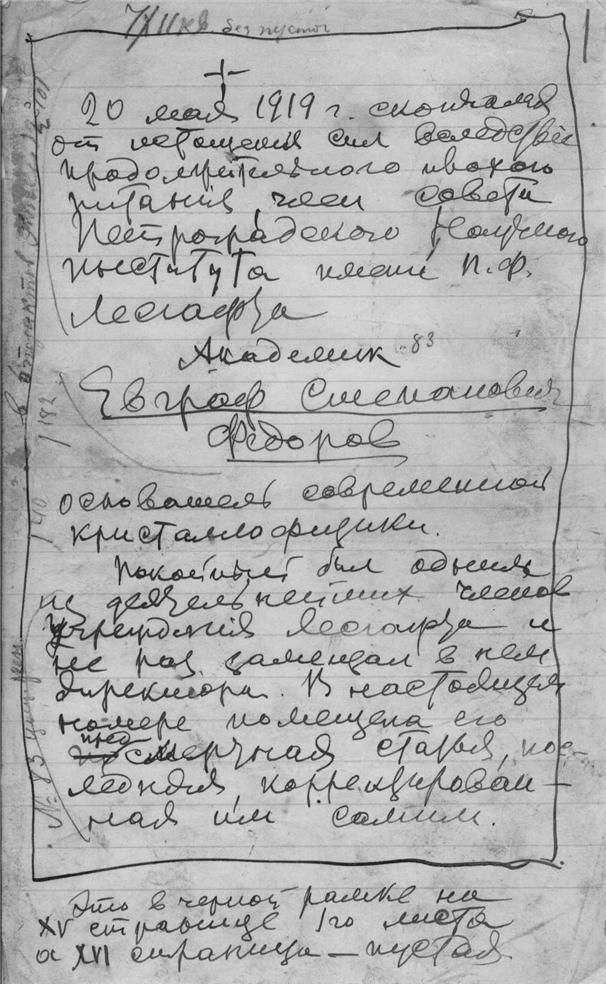 без пустой
20 мая 1919 г. скончался
от истощения сил вследствие
продолжительного плохого
питания, член совета
Петроградского Научного
Института имени П.Ф.
Лесгафта
Академик
Евграф Степанович
Федоров
основатель современной
кристаллофизики.
Покойный был одним
из деятельнейших членов
учреждения Лесгафта и
не раз замещал в нем
директора. В настоящем
номере помещена его
предсмертная статья, пос-
ледняя, корректирован-
ная им самим.
Это в черной рамке на
XV странице 1го листа
а XVI страница — пустая